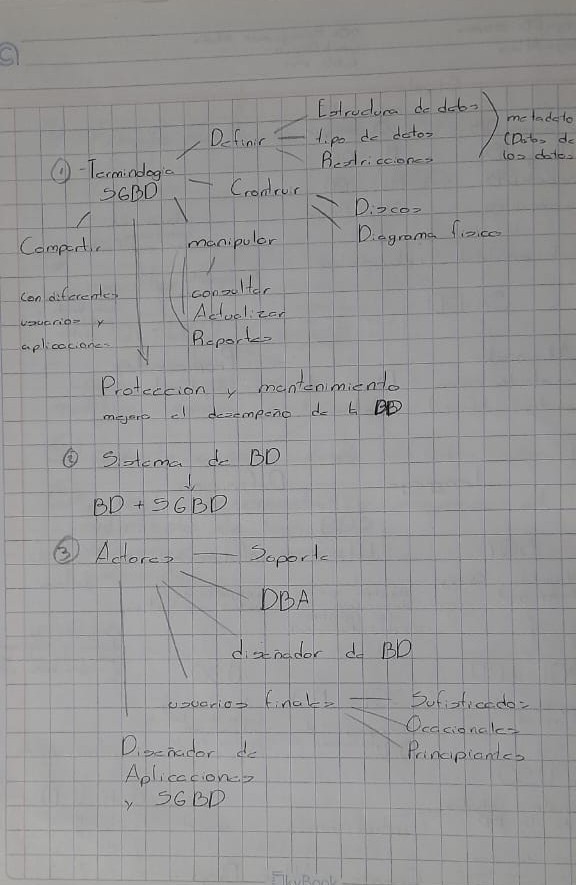 Estructura de datos
Definir - tipo de datos
Restricciones
metadato
(Datos de
los datos
① -Terminologia
SGBD
- Crontruir
Discos
Diagrama fisico
Compartir
con diferentes
usuarios y
aplicaciones
manipular
consultar
Actualizar
Reportes
Proteccion y mantenimiento
mejora el desempeño de la BD
② Sistema de BD
BD + SGBD
③ Actores — Soporte
DBA
diseñador de BD
usuarios finales — Sofisticados
Ocacionales
Principiantes
Diseñador de
Aplicaciones
y SGBD
SkyBook